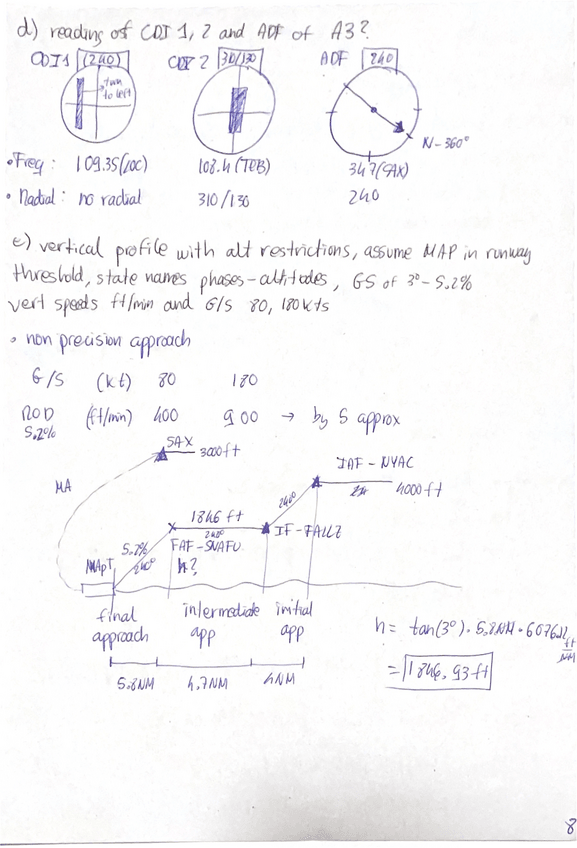 d) reading of CDI 1, 2 and ADF of A3?
CDI 1 (240) CDI 2 310/130 ADF 240
turn
to left
N-360°
• Freq: 109.35 (LOC) 108.4 (TEB) 347 (SAX)
• Radial: no radial 310/130 240
e) vertical profile with alt restrictions, assume MAP in runway
threshold, state names phases-altitudes, GS of 3°-5.2%
vert speeds ft/min and G/S 80, 180kts
• non precision approach
G/S (kt) 80 180
ROD (ft/min) 400 900 → by 5 approx
5.2%
SAX
3000ft
IAF-NYAC
4000ft
MA
240°
1846 ft
240°
IF-FALLZ
5.2%
240°
FAF-SNAFU
h?
MApT
final intermediate initial
approach app app
h = tan(3°) · 5.8NM · 6076.12 ft/NM
= 1846.93 ft
5.8NM 4.7NM 4NM
8